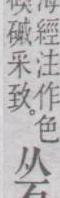 海經注作色
磩采致。
从石